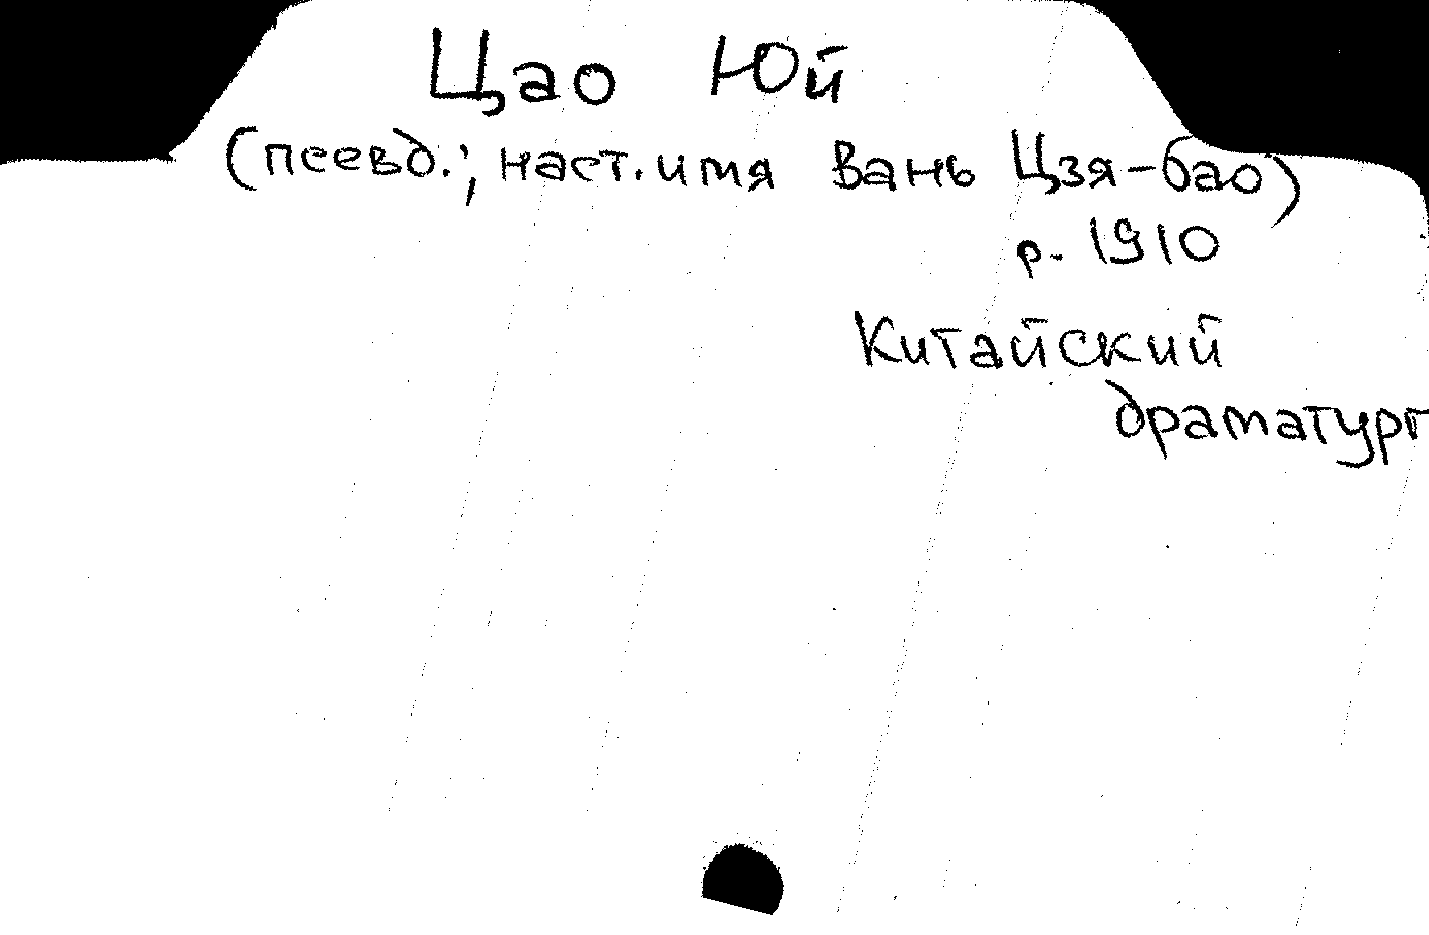 Цао Юй
(псевд.; наст. имя Вань Цзя-бао)
р. 1910
Китайский
драматург